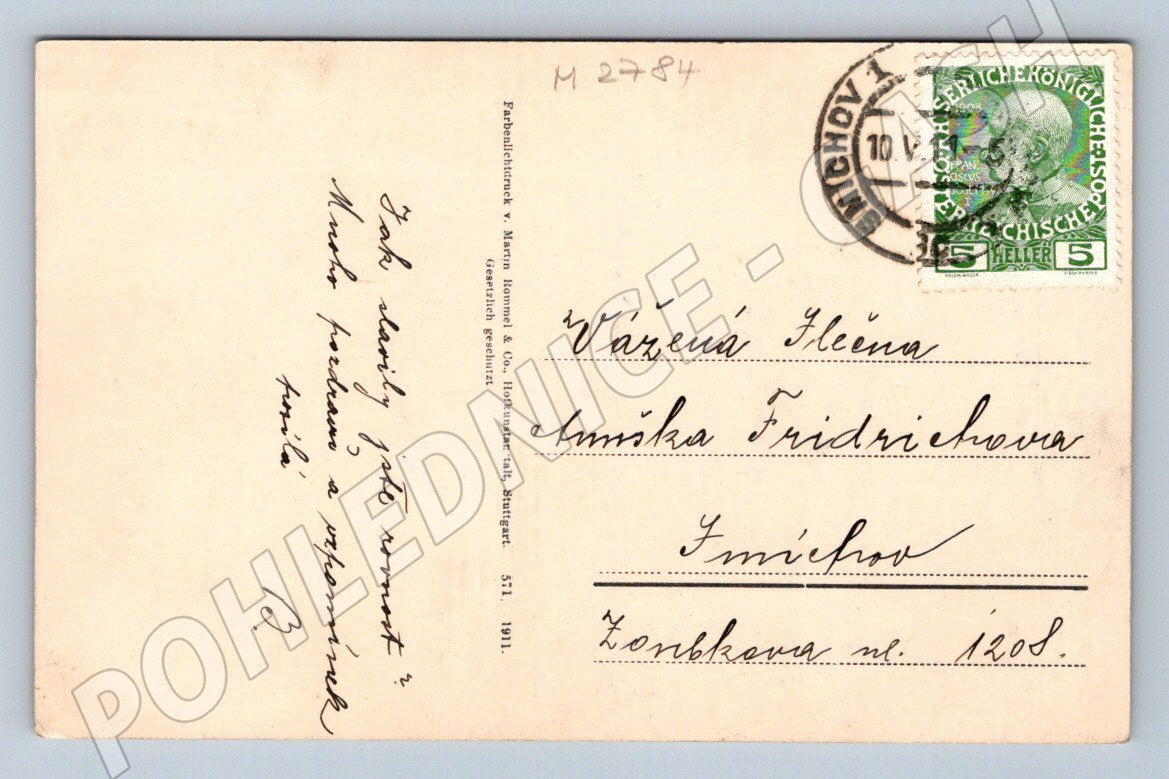 M 2784
SMICHOV 1
10.V.11-5
KAISERLICHE KÖNIGLICHE
ÖSTERREICHISCHE POST
1908
FRAN
CISCVS
IOSEPH
I
5 HELLER 5
Vážená Slečna
Anuška Fridrichova
Smíchov
Zorubkova ul. 1208.
Farbenlichtdruck v. Martin Rommel & Co., Hofkunstanstalt, Stuttgart. 571. 1911.
Gesetzlich geschützt
Jak slavily jste rovnost?
Mnoho pozdravů a vzpomínek
posílá
B
POHLEDNICE - CASH